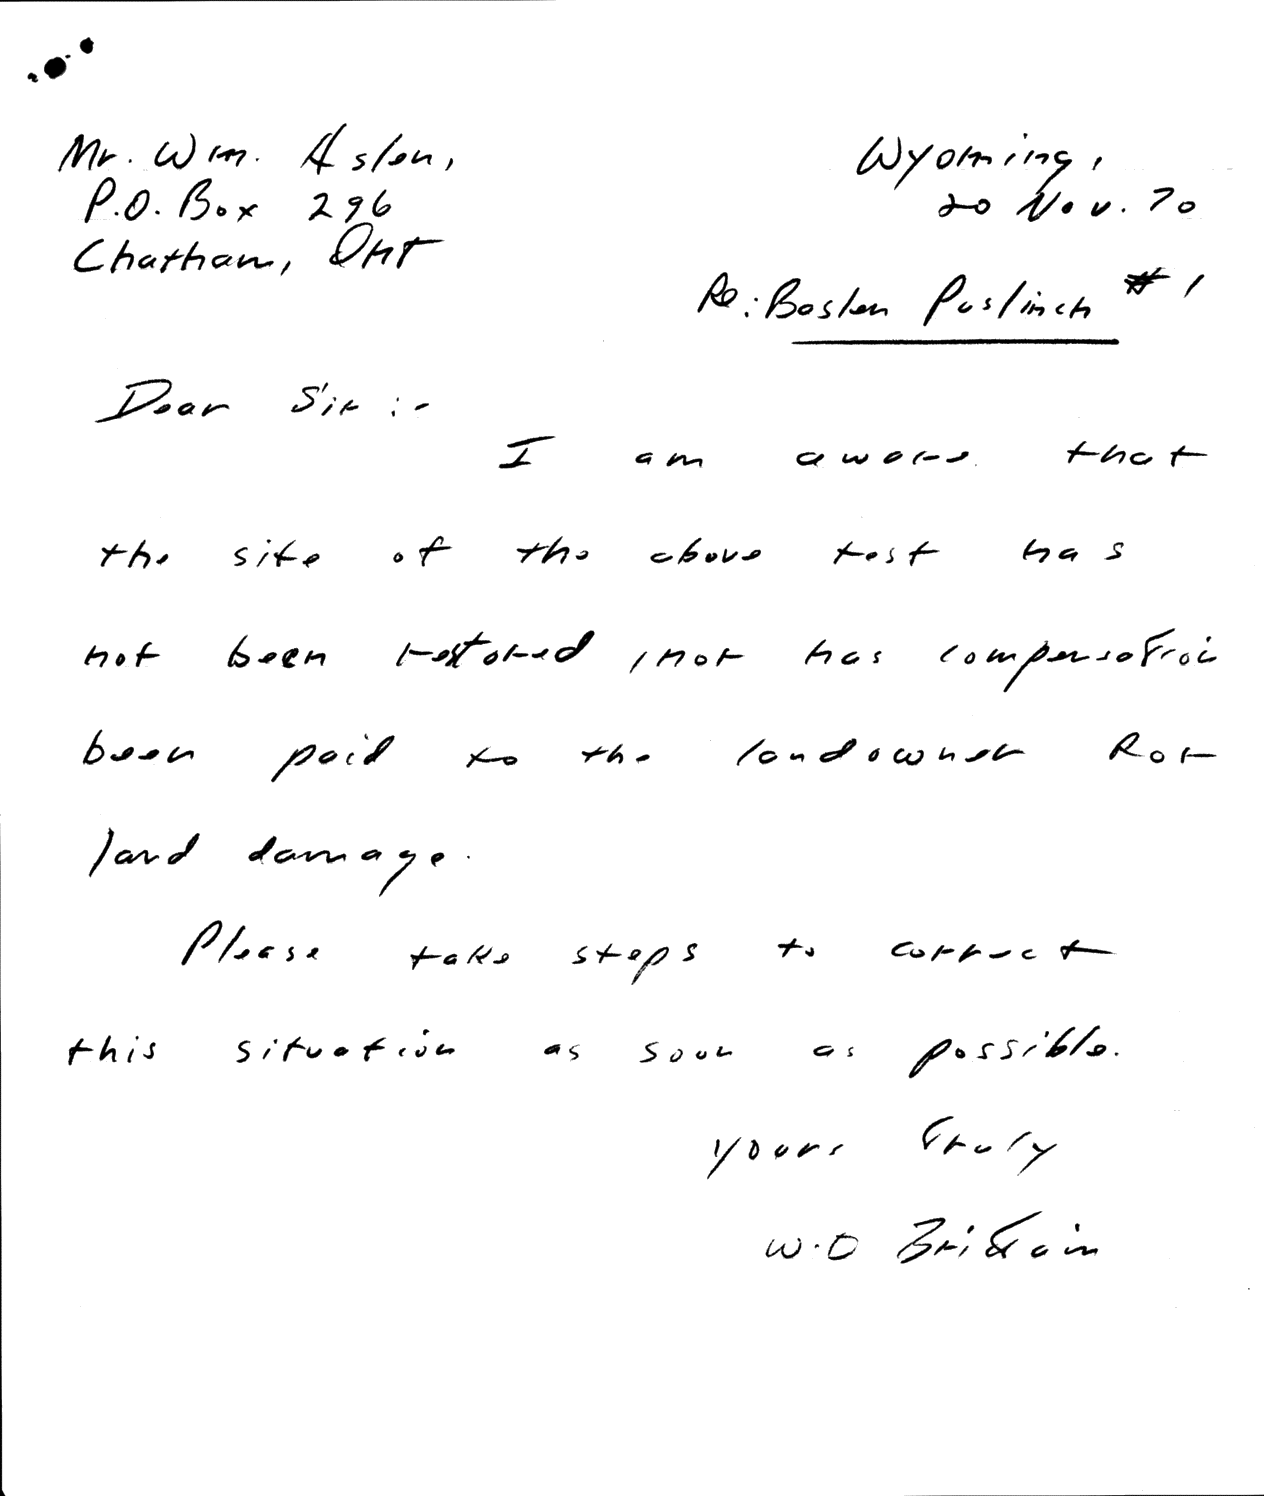 Mr. Wm. Aslen,
P.O. Box 296
Chatham, Ont
Wyoming,
20 Nov. 70
Re: Boslen Puslinch #1
Dear Sir :-
I am aware that
the site of the above test has
not been restored, nor has compensation
been paid to the landowner for
land damage.
Please take steps to correct
this situation as soon as possible.
Yours Truly
W.D Brittain